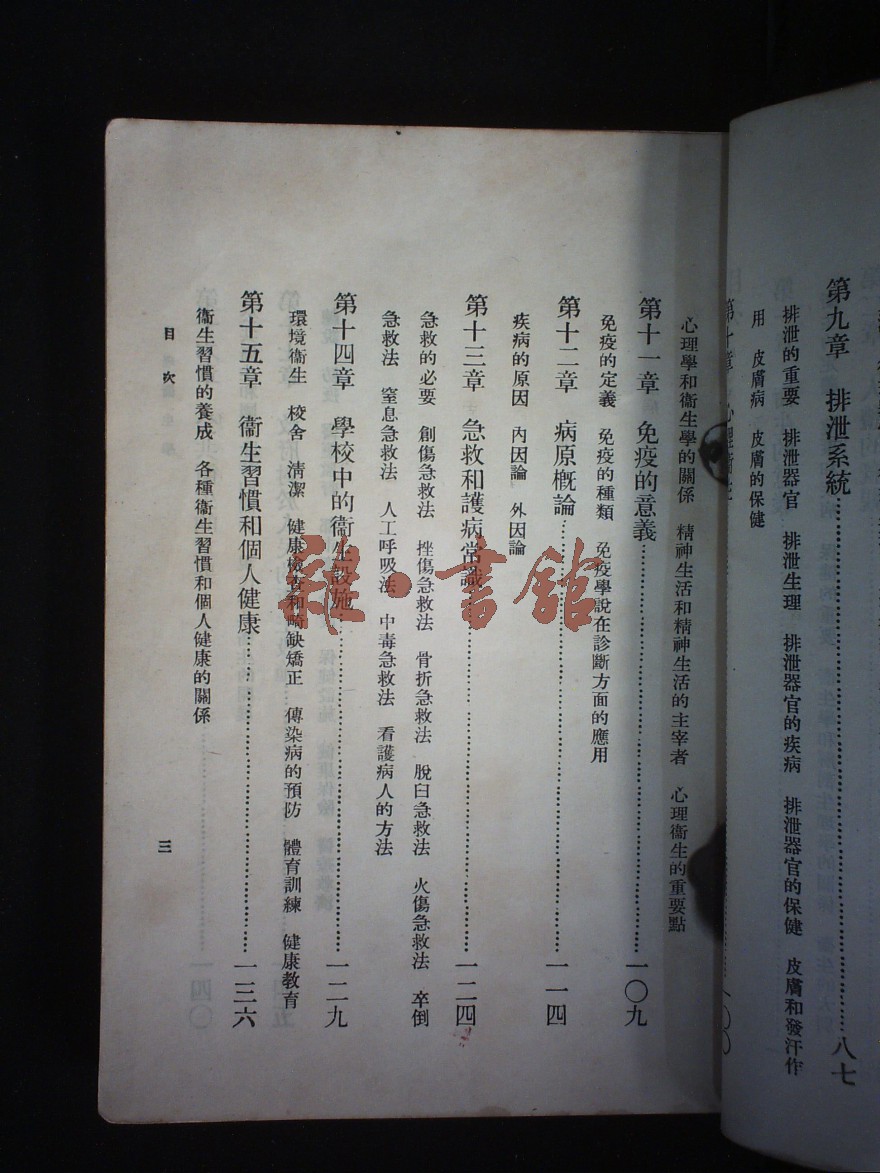 第九章　排泄系統……八七
排泄的重要　排泄器官　排泄生理　排泄器官的疾病　排泄器官的保健　皮膚和發汗作
用　皮膚病　皮膚的保健
第十章　心理衞生……一〇〇
心理學和衞生學的關係　精神生活和精神生活的主宰者　心理衞生的重要點
第十一章　免疫的意義……一〇九
免疫的定義　免疫的種類　免疫學說在診斷方面的應用
第十二章　病原槪論……一一四
疾病的原因　內因論　外因論
第十三章　急救和護病常識……一二四
急救的必要　創傷急救法　挫傷急救法　骨折急救法　脫臼急救法　火傷急救法　卒倒
急救法　窒息急救法　人工呼吸法　中毒急救法　看護病人的方法
第十四章　學校中的衞生設施……一二九
環境衞生　校舍　淸潔　健康檢查和畸缺矯正　傳染病的預防　體育訓練　健康教育
第十五章　衞生習慣和個人健康……一三六
衞生習慣的養成　各種衞生習慣和個人健康的關係
目次
三
雜·書館